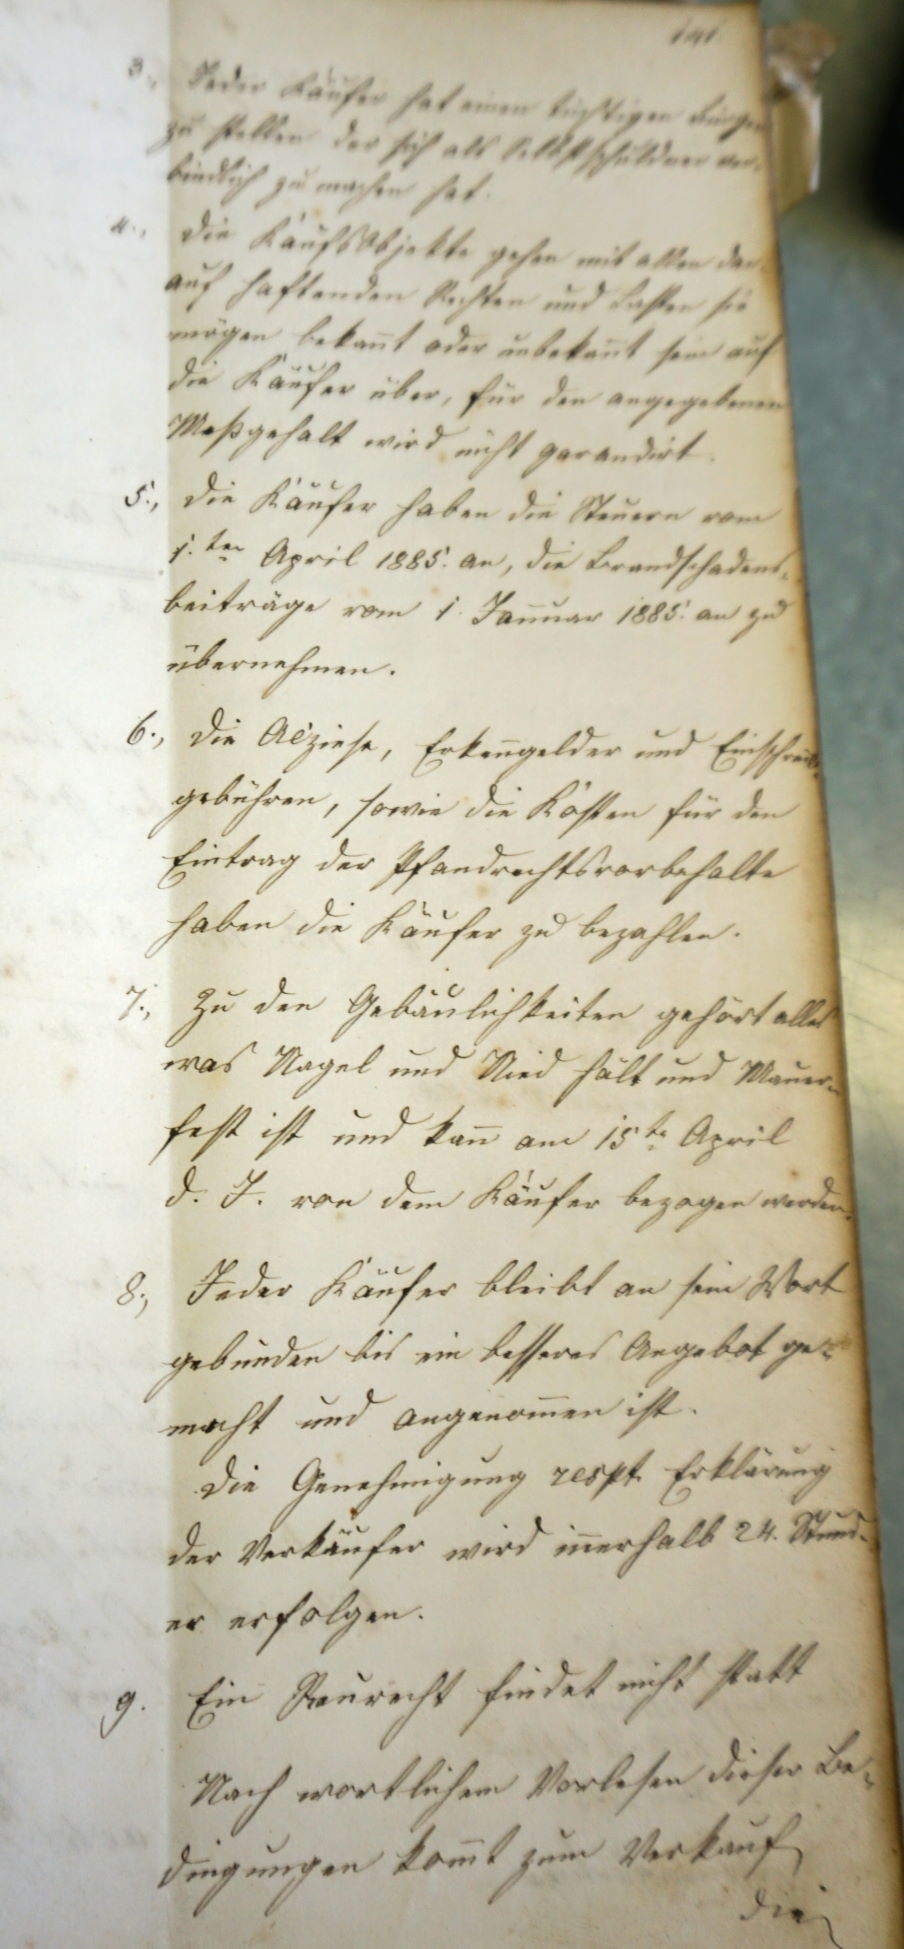 191
3., Jeder Käufer hat einen tüchtigen Bürgen
zu stellen der sich als Selbstschuldner ver-
bindlich zu machen hat.
4., Die Kaufsobjekte gehen mit allen dar-
auf haftenden Rechten und Lasten sie
mögen bekañt oder unbekañt sein auf
die Käufer über, für den angegebenen
Meßgehalt wird nicht garandirt.
5., Die Käufer haben die Steuern vom
1. ten April 1885. an, die Brandschadens-
beiträge vom 1. Jañuar 1885. an zu
übernehmen.
6., Die Acziese, Erkeñgelder und Einschreib-
gebühren, sowie die Kosten für den
Eintrag der Pfandrechtsvorbehalte
haben die Käufer zu bezahlen.
7., Zu den Gebäulichkeiten gehört alles
was Nagel und Nied hält und Mauer-
fest ist und kañ am 15 te April
d. J. von dem Käufer bezogen werden.
8., Jeder Käufer bleibt an sein Wort
gebunden bis ein besseres Angebot ge-
macht und angenom̄en ist.
Die Genehmigung respt. Erklärung
der Verkäufer wird iñerhalb 24. Stund-
er erfolgen.
9. Ein Reurecht findet nicht statt
Nach wortlichem Vorlesen dieser Be-
dingungen kom̄t zum Verkauf
die